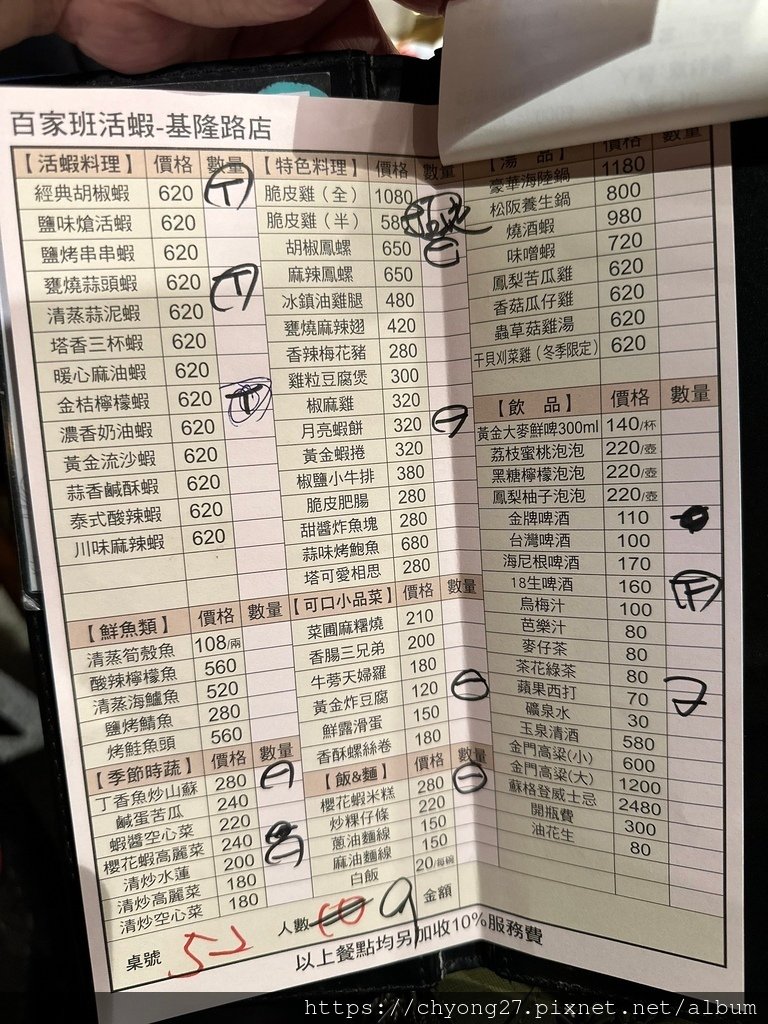 百家班活蝦-基隆路店
【活蝦料理】 價格 數量
經典胡椒蝦 620
鹽味熗活蝦 620
鹽烤串串蝦 620
甕燒蒜頭蝦 620
清蒸蒜泥蝦 620
塔香三杯蝦 620
暖心麻油蝦 620
金桔檸檬蝦 620
濃香奶油蝦 620
黃金流沙蝦 620
蒜香鹹酥蝦 620
泰式酸辣蝦 620
川味麻辣蝦 620
【鮮魚類】 價格 數量
清蒸筍殼魚 108/兩
酸辣檸檬魚 560
清蒸海鱸魚 520
鹽烤鯖魚 280
烤鮭魚頭 560
【季節時蔬】 價格 數量
丁香魚炒山蘇 280
鹹蛋苦瓜 240
蝦醬空心菜 220
櫻花蝦高麗菜 240
清炒水蓮 200
清炒高麗菜 180
清炒空心菜 180
【特色料理】 價格 數量
脆皮雞（全） 1080
脆皮雞（半） 580
胡椒鳳螺 650
麻辣鳳螺 650
冰鎮油雞腿 480
甕燒麻辣翅 420
香辣梅花豬 280
雞粒豆腐煲 300
椒麻雞 320
月亮蝦餅 320
黃金蝦捲 320
椒鹽小牛排 380
脆皮肥腸 280
甜醬炸魚塊 280
蒜味烤鮑魚 680
塔可愛相思 280
【可口小品菜】 價格 數量
菜圃麻糬燒 210
香腸三兄弟 200
牛蒡天婦羅 180
黃金炸豆腐 120
鮮露滑蛋 150
香酥螺絲卷 180
【飯&麵】 價格 數量
櫻花蝦米糕 280
炒粿仔條 220
蔥油麵線 150
麻油麵線 150
白飯 20/每碗
【湯 品】 價格 數量
豪華海陸鍋 1180
松阪養生鍋 800
燒酒蝦 980
味噌蝦 720
鳳梨苦瓜雞 620
香菇瓜仔雞 620
蟲草菇雞湯 620
干貝刈菜雞（冬季限定） 620
【飲 品】 價格 數量
黃金大麥鮮啤300ml 140/杯
荔枝蜜桃泡泡 220/壺
黑糖檸檬泡泡 220/壺
鳳梨柚子泡泡 220/壺
金牌啤酒 110
台灣啤酒 100
海尼根啤酒 170
18生啤酒 160
烏梅汁 100
芭樂汁 80
麥仔茶 80
茶花綠茶 80
蘋果西打 70
礦泉水 30
玉泉清酒 580
金門高粱(小) 600
金門高粱(大) 1200
蘇格登威士忌 2480
開瓶費 300
油花生 80
桌號 52 人數 10 9 金額
以上餐點均另加收10%服務費
https://chyong27.pixnet.net/album